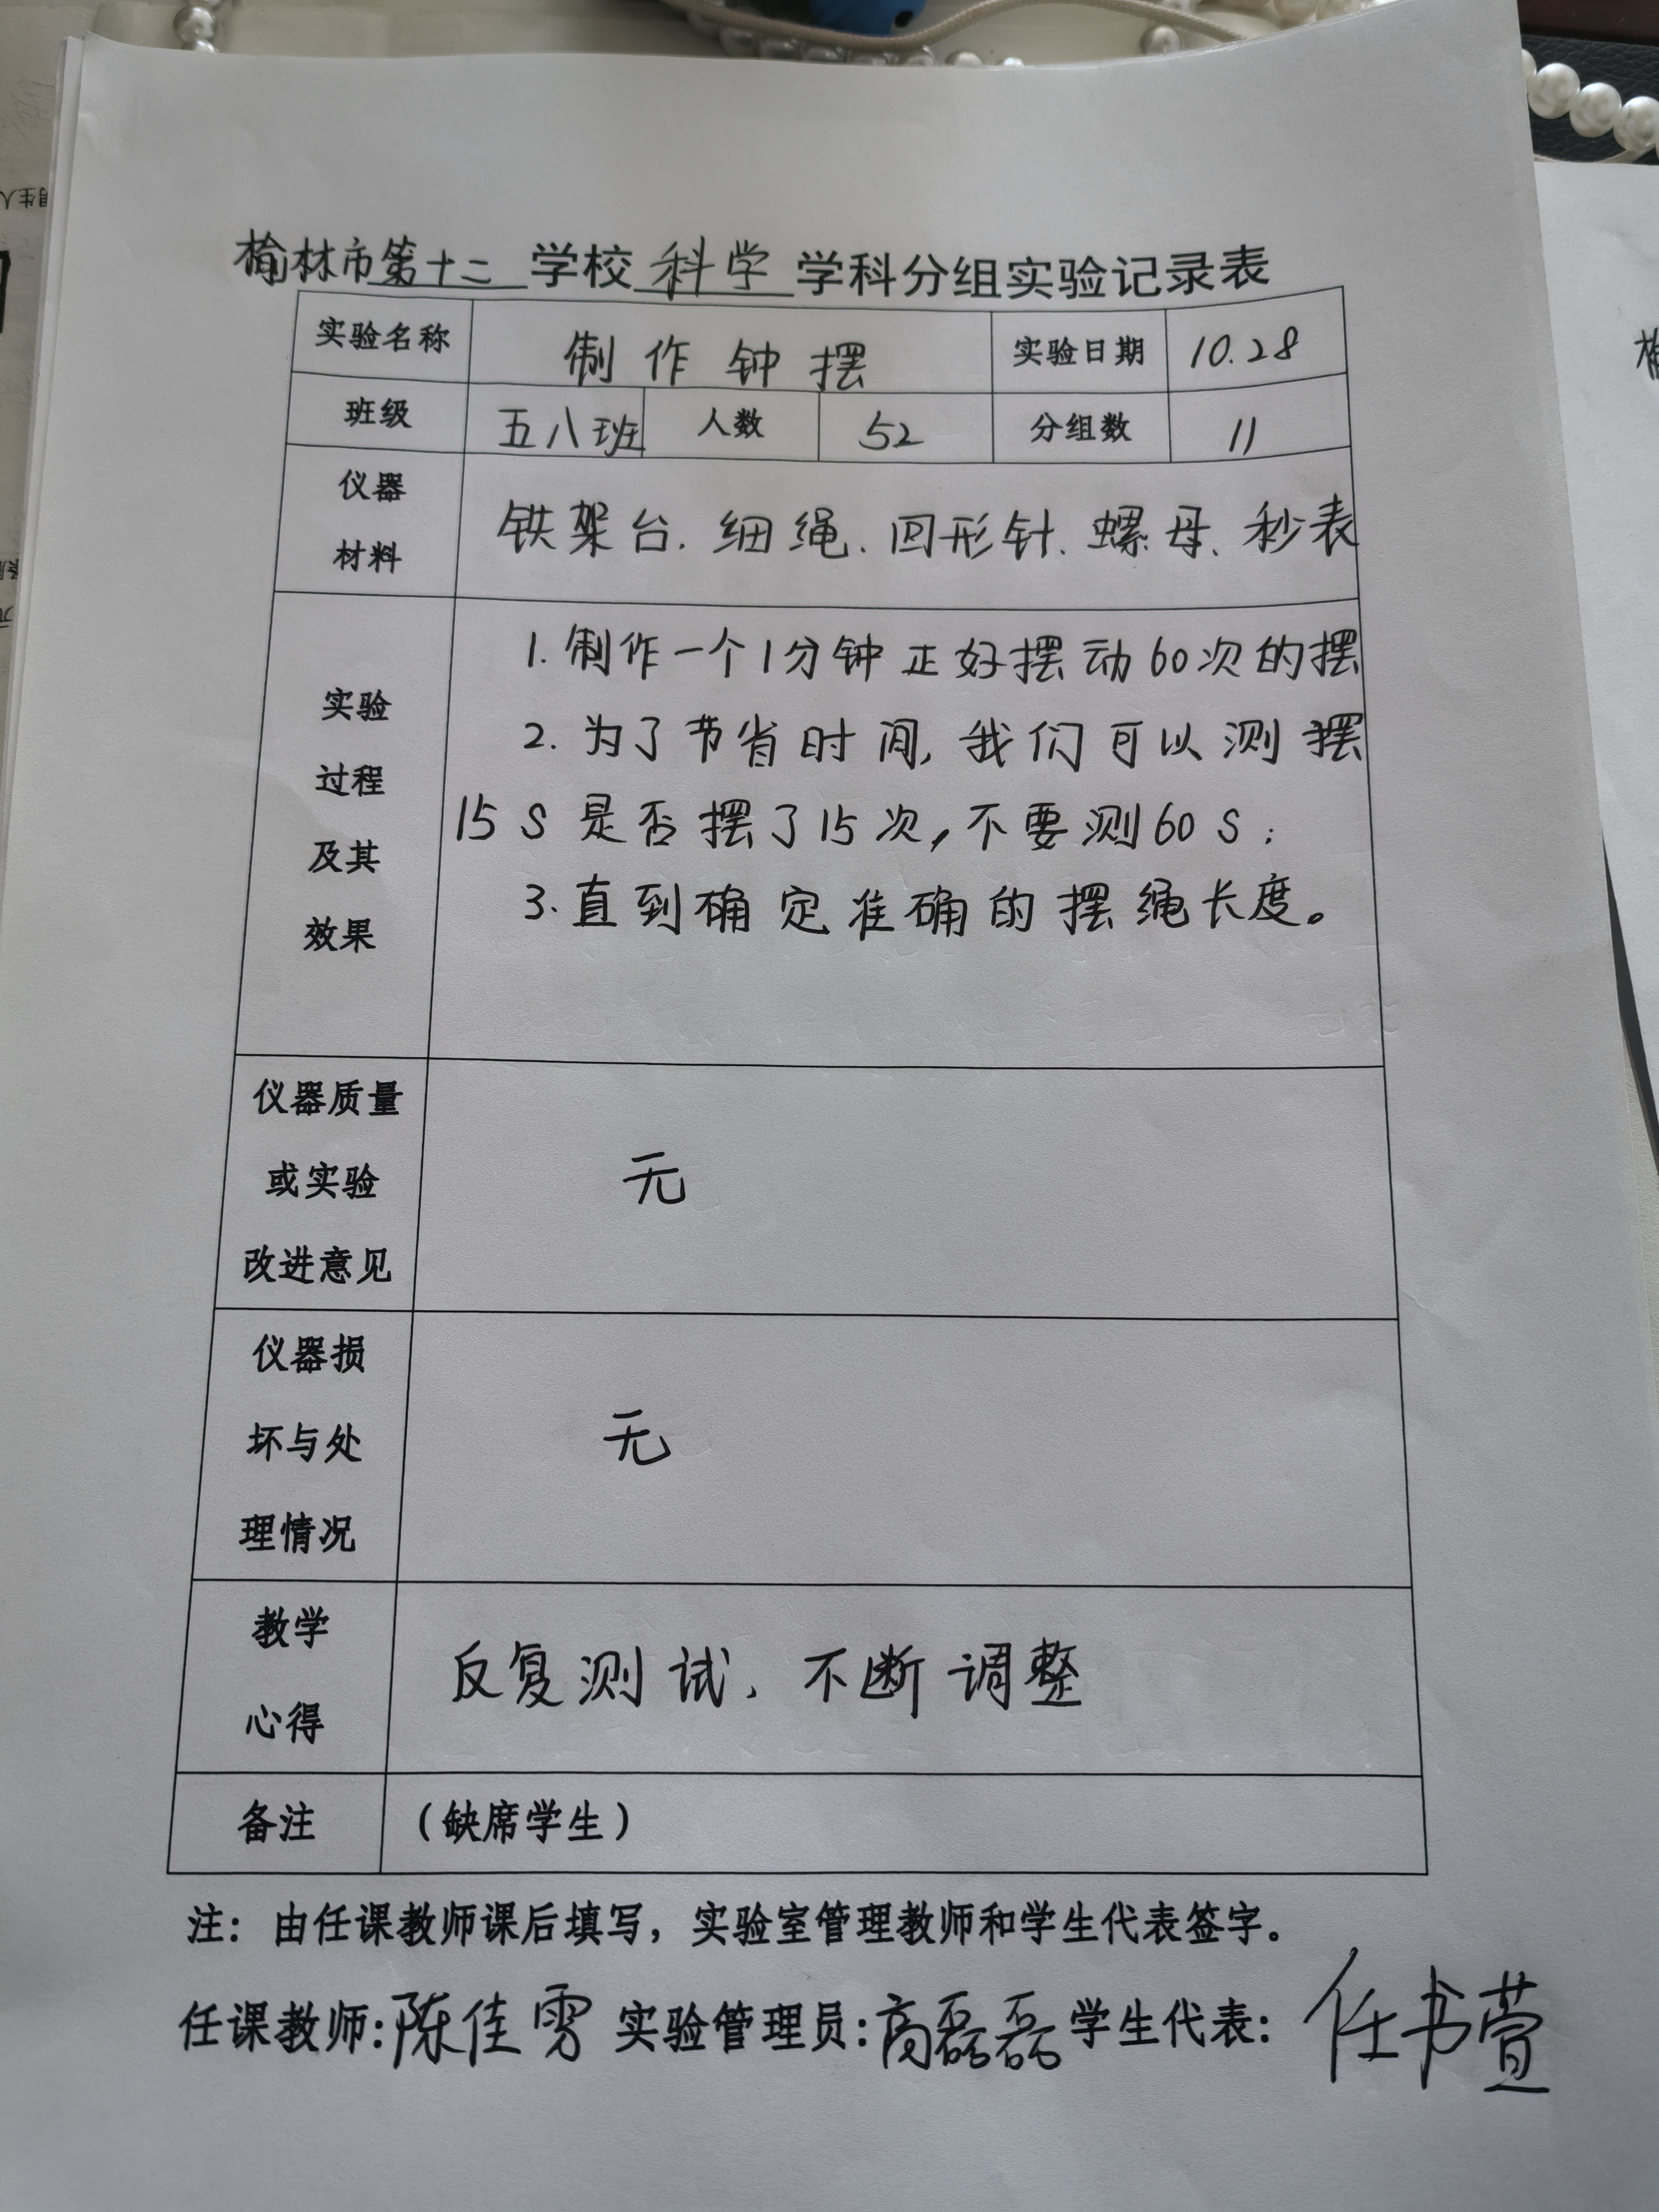 榆林市第十二学校科学学科分组实验记录表
实验名称 制作钟摆 实验日期 10.28
班级 五八班 人数 52 分组数 11
仪器
材料
铁架台、细绳、回形针、螺母、秒表
实验
过程
及其
效果
1. 制作一个1分钟正好摆动60次的摆
2. 为了节省时间, 我们可以测摆
15 S 是否摆了15次, 不要测60 S;
3. 直到确定准确的摆绳长度。
仪器质量
或实验
改进意见
无
仪器损
坏与处
理情况
无
教学
心得
反复测试、不断调整
备注 (缺席学生)
注：由任课教师课后填写，实验室管理教师和学生代表签字。
任课教师:陈佳雰 实验管理员:高磊磊 学生代表: 任书萱